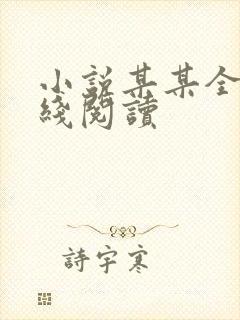 小説某某全
綫閱讀
詩宇寒